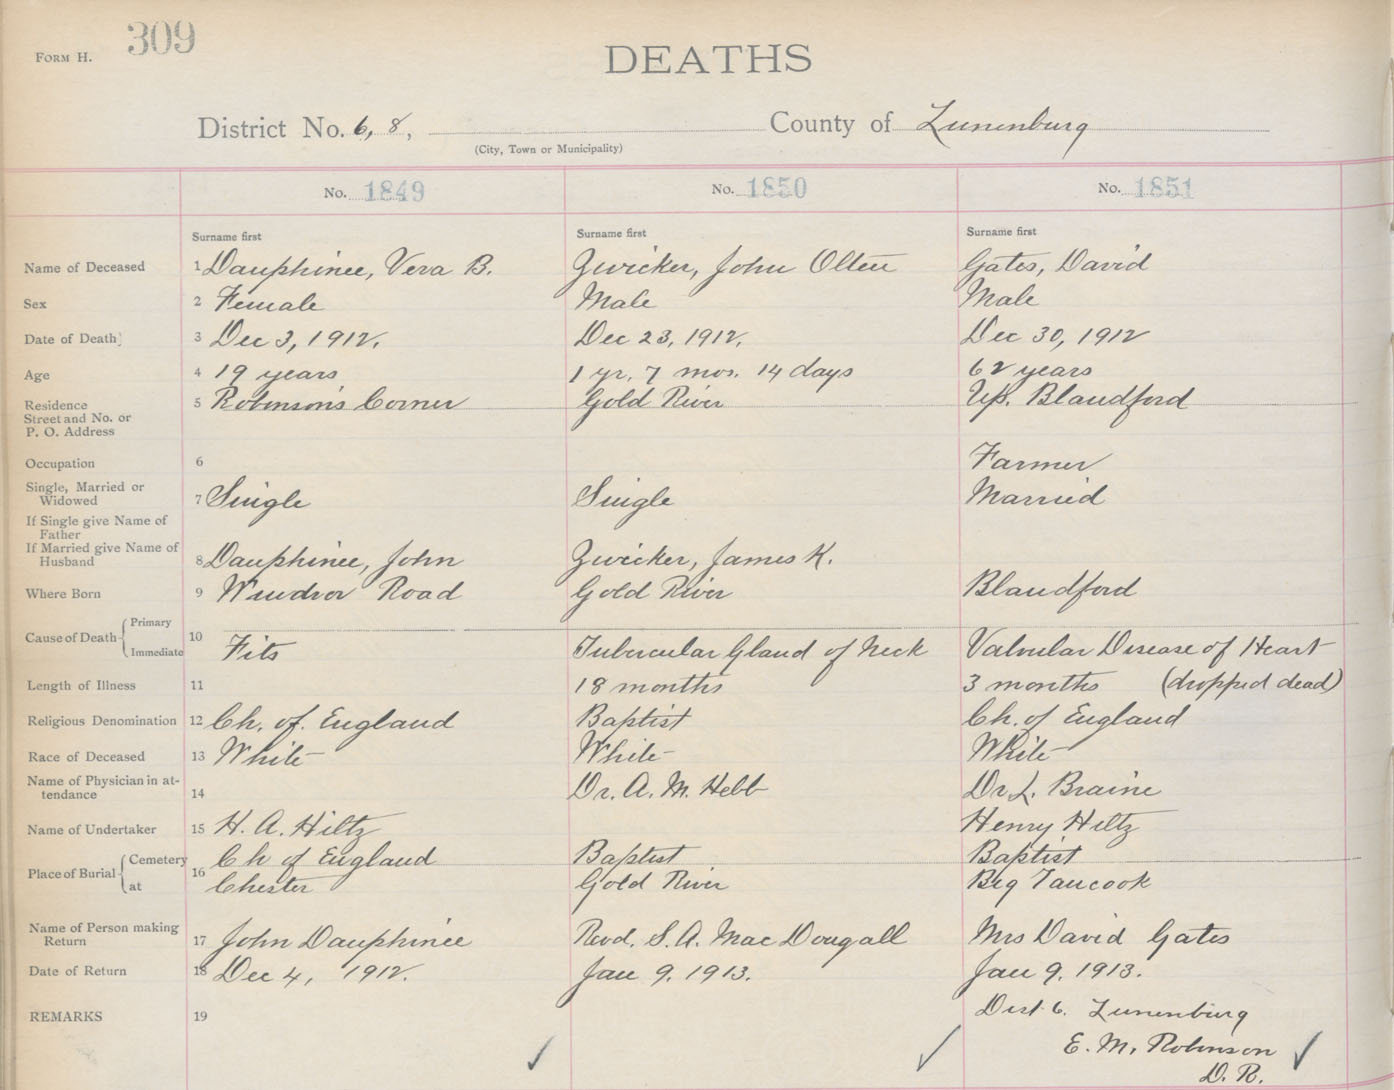 FORM H. 309
DEATHS
District No. 6, 8, County of Lunenburg
(City, Town or Municipality)
No. 1849 No. 1850 No. 1851
Surname first Surname first Surname first
Name of Deceased 1 Dauphinee, Vera B. Zwicker, John Olten Gates, David
Sex 2 Female Male Male
Date of Death 3 Dec 3, 1912. Dec 23, 1912. Dec 30, 1912
Age 4 19 years 1 yr. 7 mos. 14 days 62 years
Residence 5 Robinson's Corner Gold River Up. Blandford
Street and No. or
P. O. Address
Occupation 6 Farmer
Single, Married or
Widowed 7 Single Single Married
If Single give Name of
Father
If Married give Name of
Husband 8 Dauphinee, John Zwicker, James K.
Where Born 9 Windsor Road Gold River Blandford
Cause of Death Primary
Immediate 10 Fits Tubercular Gland of Neck Valvular Disease of Heart
Length of Illness 11 18 months 3 months (dropped dead)
Religious Denomination 12 Ch. of England Baptist Ch. of England
Race of Deceased 13 White White White
Name of Physician in at-
tendance 14 Dr. A. M. Hebb Dr L. Braine
Name of Undertaker 15 H. A. Hiltz Henry Hiltz
Place of Burial Cemetery 16 Ch of England Baptist Baptist
at Chester Gold River Big Tancook
Name of Person making
Return 17 John Dauphinee Revd. S. A. Mac Dougall Mrs David Gates
Date of Return 18 Dec 4, 1912. Jan 9. 1913. Jan 9. 1913.
REMARKS 19 Dist 6. Lunenburg
E. M. Robinson
D. R.